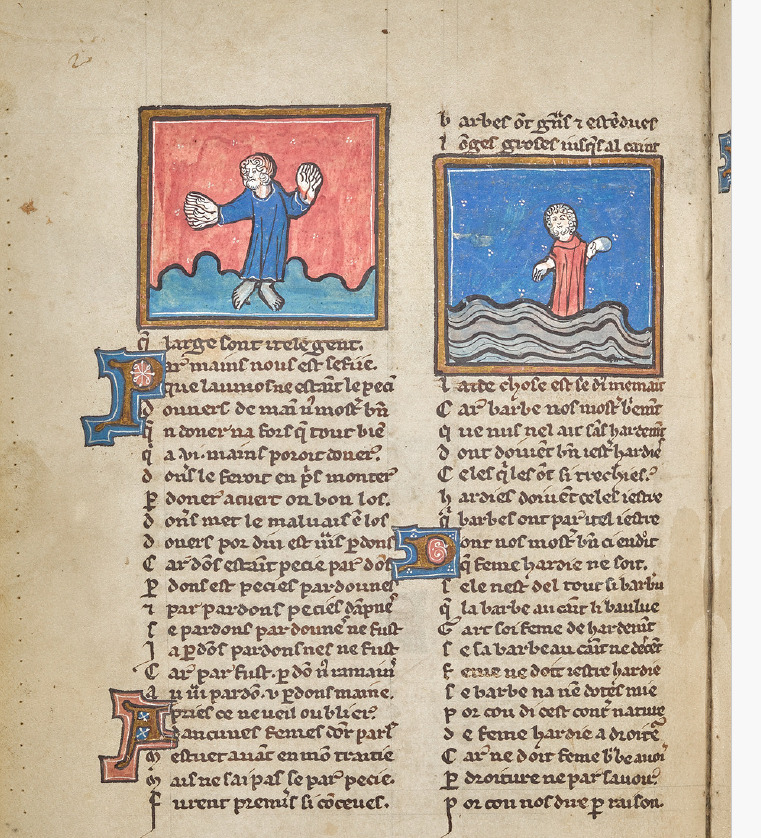 2
q̃ large sont itele gent.
Par mains nous est
que laumosne estaīt le peci
douvers de mai n̄ mostr̄ bn̄
q̄ n doner na fors q̄ tout biē
q̄ a .vi. mains poroit doner.
dons le feroit en p̄s monter
ꝑ doner acuert on bon los.
dons met le malvais ē los
dovers por diu est ꝑdons
Car dōs estaīt pecie par dōs
ꝑ dons est pecies pardounes
⁊ par pardons pecies dāpnes
se pardons pardoune ne fust
Ja ꝑdōs ne fust
Car par fust. ꝑdō n̄ ramain
pardō. v ꝑdons maine.
Apries ce ne veil oublier.
Dancunes femes pars
mestuet auant en mō traitie
mais ne sai pas se par pecie.
furent premīs si cōceues.
barbes ōt grīs ⁊ estēdues
lōges groses iusq̄s al caint
laide chose est se di
Car barbe nos mostr̄
que nus nel ait sās hardemt
dont doiuēt bn̄ iestr̄ hardie
Celes q̄ les ōt si trechies.
hardies doiuēt celes iestre
q̄ barbes ont par itel iestre
Dont nos mostr̄ bn̄
q̄ feme hardie ne soit.
sele nest del tout si barbu
q̄ la barbe au caīt li baulue
Gart soi feme de hardemt
se sa barbe au caīt ne
feme ne doit iestre hardie
se barbe na mie
por cou di cest contr̄ nature
de feme hardie a droite
Car ne doit feme bbe auoir
ꝑ droiture ne par sauoir
por cou nos dire ꝑ raison.